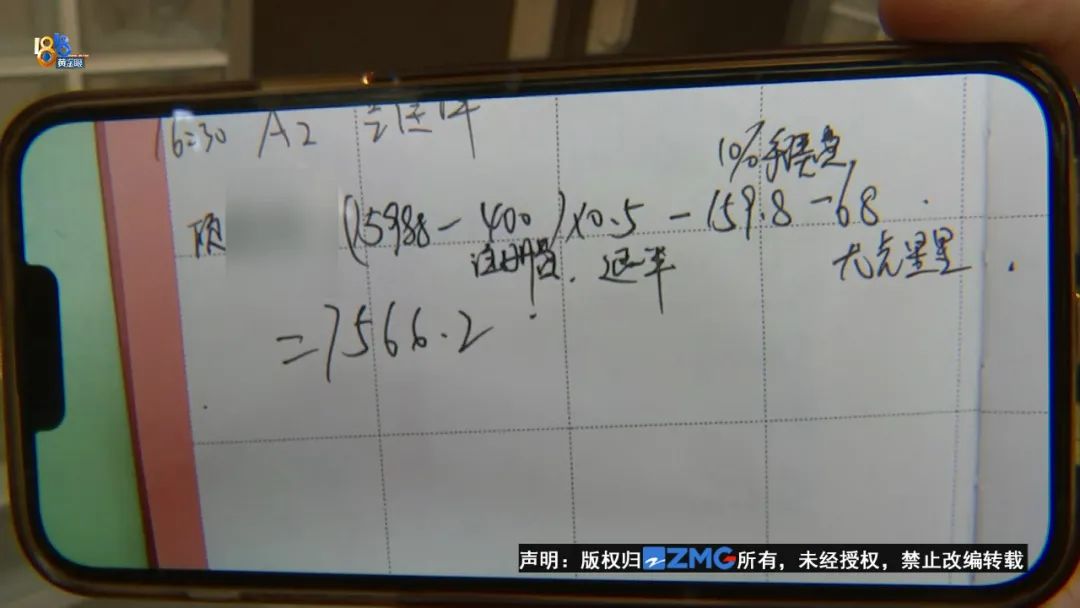 1818
黄金眼
16:30 A2
10%手续费
顾 (15988-400)×0.5-159.8-68
注册费. 退一半 尤克里里.
=7566.2
声明：版权归ZMG所有，未经授权，禁止改编转载